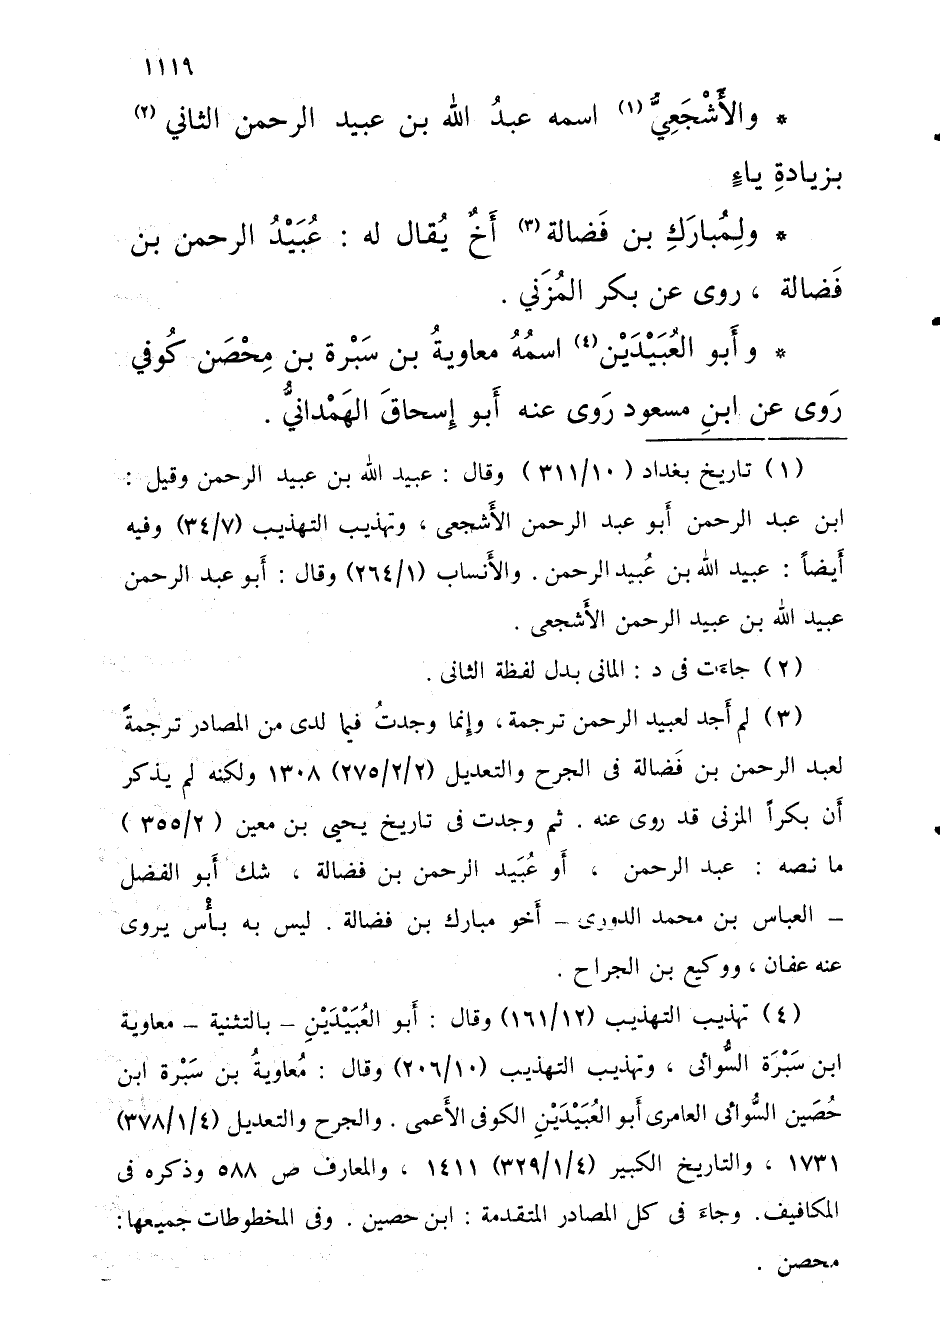 ١١١٩
* والأَشْجَعِيُّ (١) اسمه عبدُ الله بن عبيد الرحمن الثاني (٢)
بزيادةِ ياءٍ
* ولِمُبارَكِ بن فَضالة (٣) أَخٌ يُقال له : عُبَيْدُ الرحمن بن
فَضالة ، روى عن بكر المُزَني .
* وأَبو العُبَيْدَيْن (٤) اسمُهُ معاويةُ بن سَبْرة بن مِحْصَن كُوفي
رَوى عن ابنِ مسعود رَوى عنه أَبو إِسحاقَ الهَمْدانيُّ .
(١) تاريخ بغداد (٣١١/١٠) وقال : عبيد الله بن عبيد الرحمن وقيل :
ابن عبد الرحمن أَبو عبد الرحمن الأَشجعى ، وتهذيب التهذيب (٣٤/٧) وفيه
أَيضاً : عبيد الله بن عُبيد الرحمن . والأَنساب (٢٦٤/١) وقال : أَبو عبد الرحمن
عبيد الله بن عبيد الرحمن الأَشجعى .
(٢) جاءَت فى د : المانى بدل لفظة الثانى .
(٣) لم أَجد لعبيد الرحمن ترجمة ، وإِنما وجدتُ فيما لدى من المصادر ترجمةً
لعبد الرحمن بن فَضالة فى الجرح والتعديل (٢٧٥/٢/٢) ١٣٠٨ ولكنه لم يذكر
أَن بكراً المزنى قد روى عنه . ثم وجدت فى تاريخ يحيى بن معين (٣٥٥/٢)
ما نصه : عبد الرحمن ، أَو عُبَيد الرحمن بن فضالة ، شك أَبو الفضل
– العباس بن محمد الدورى – أَخو مبارك بن فضالة . ليس به بأْس يروى
عنه عفان ، ووكيع بن الجراح .
(٤) تهذيب التهذيب (١٦١/١٢) وقال : أَبو العُبَيْدَيْنِ – بالتثنية – معاوية
ابن سَبْرَة السُّوائى ، وتهذيب التهذيب (٢٠٦/١٠) وقال : مُعاويةُ بن سَبْرة ابن
حُصَين السُّوائى العامرى أَبو العُبَيْدَيْنِ الكوفى الأَعمى . والجرح والتعديل (٣٧٨/١/٤)
١٧٣١ ، والتاريخ الكبير (٣٢٩/١/٤) ١٤١١ ، والمعارف ص ٥٨٨ وذكره فى
المكافيف . وجاءَ فى كل المصادر المتقدمة : ابن حصين . وفى المخطوطات جميعها :
محصن .